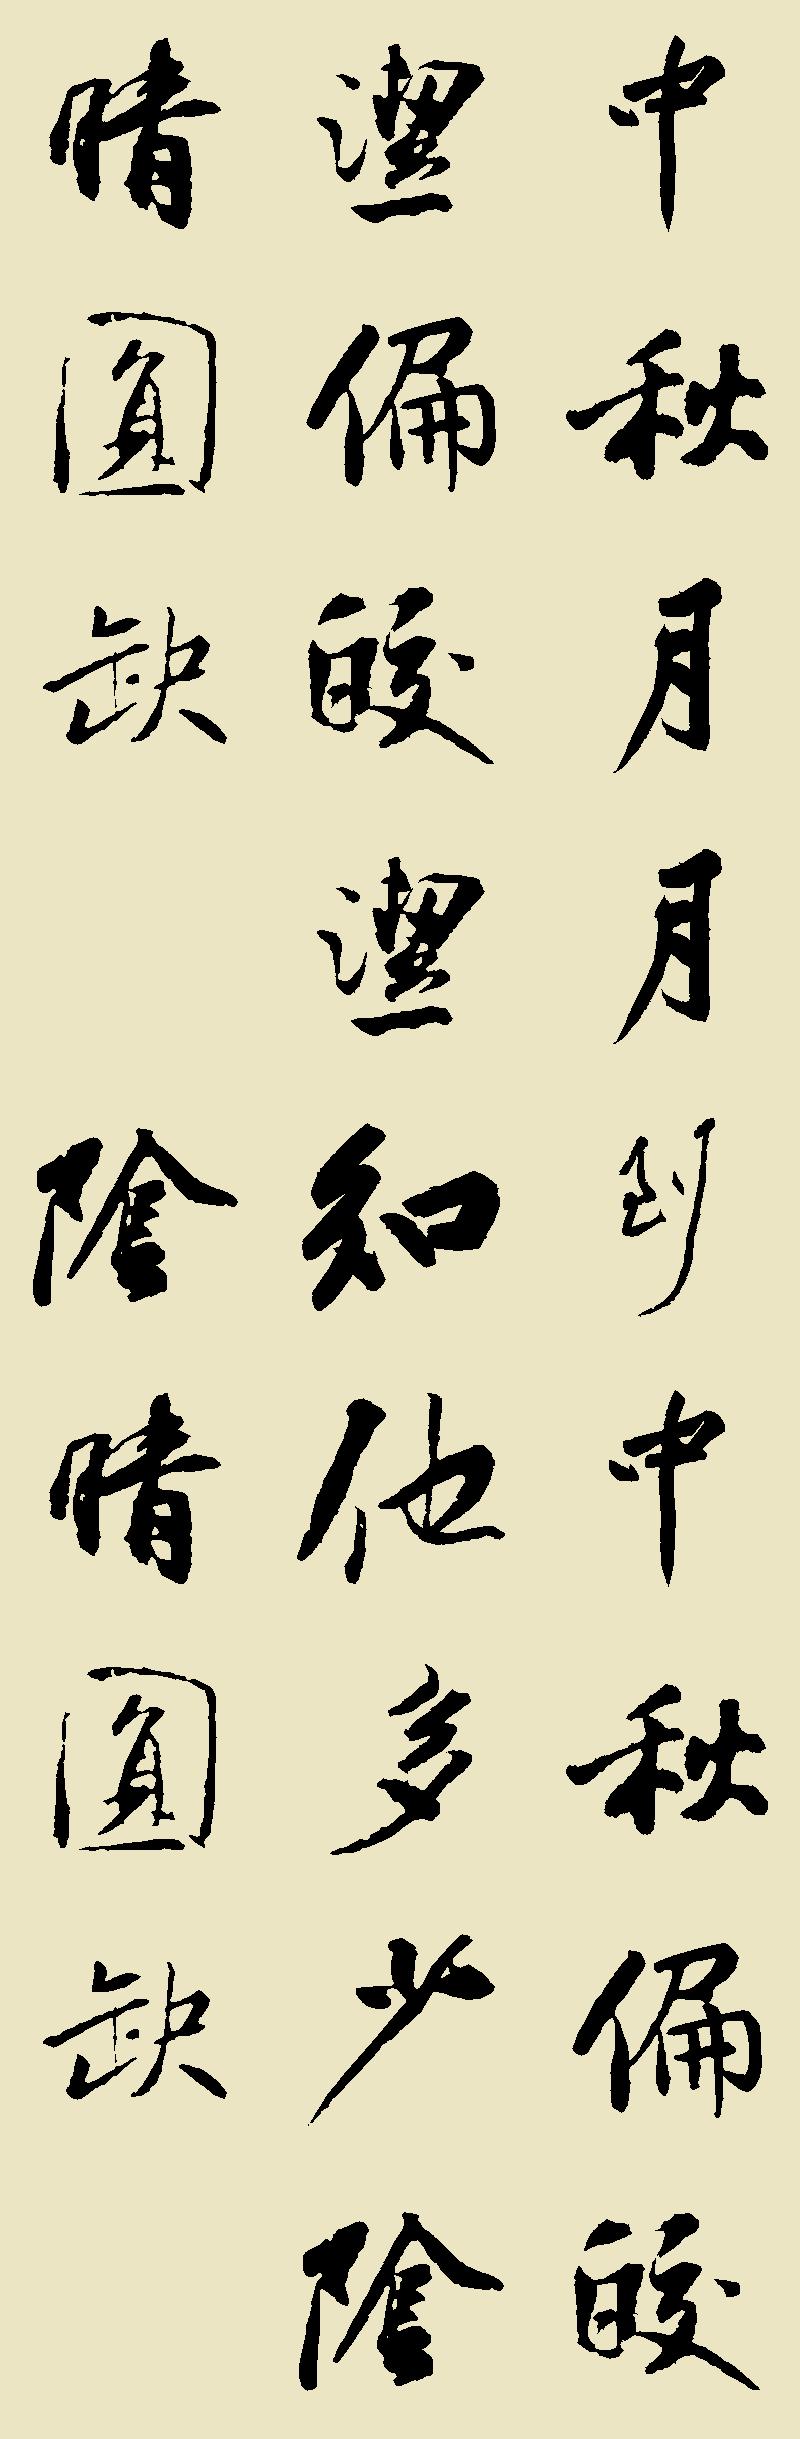 中秋月月到中秋偏皎
潔偏皎潔知他多少陰
晴圓缺
陰晴圓缺